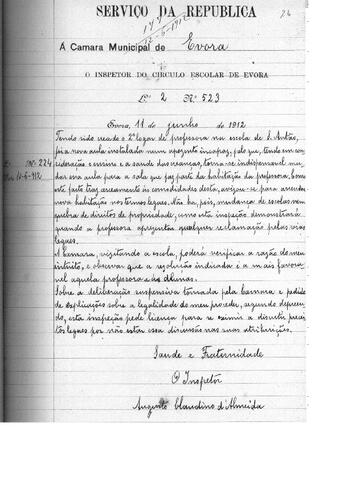 SERVIÇO DA REPUBLICA
12-6-1912
Á Camara Municipal de Evora
O INSPETOR DO CIRCULO ESCOLAR DE EVORA
Lº 2 Nº 523
Evora, 11 de junho de 1912
Tendo sido creado o 2º logar de professora na escola de S. Antão,
foi a nova aula instalada num aposento incapaz, pelo que, tendo em con-
sideração o ensino e a saude das creanças, torna-se indispensavel mu-
Nº 224
dar essa aula para a sala que faz parte da habitação da professora, e como
11-6-912
este facto traz cerceamento ás comodidades desta, avisou-se para arrendar
nova habitação nos termos legaes. Não ha, pois, mudança de escolas nem
quebra de direitos de propriedade, como esta inspeção demonstrará
quando a professora apresentar qualquer reclamação pelas vias
legaes.
A Camara, visitando a escola, poderá verificar a razão do meu
critério, e observar que a resolução indicada é a mais favora-
vel áquela professora e ás alunas.
Sobre a deliberação suspensiva tomada pela Camara e pedido
de explicações sobre a legalidade do meu proceder, segundo depreen-
do, esta inspeção pede licença para se eximir a discutir precei-
tos legaes por não estar essa discussão nas suas atribuições.
Saude e Fraternidade
O Inspetor
Augusto Claudino d'Almeida